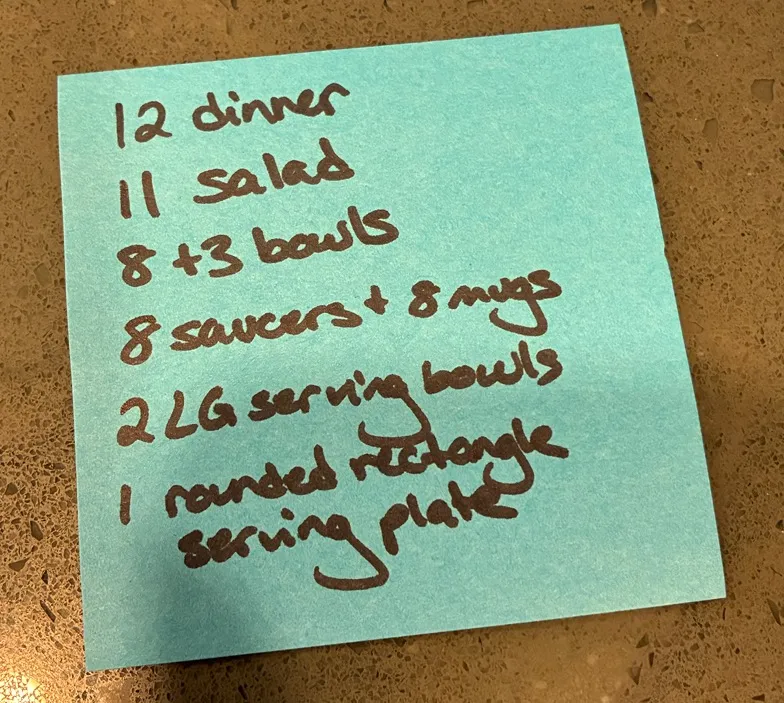 12 dinner
11 salad
8 + 3 bowls
8 saucers + 8 mugs
2 LG serving bowls
1 rounded rectangle
serving plate